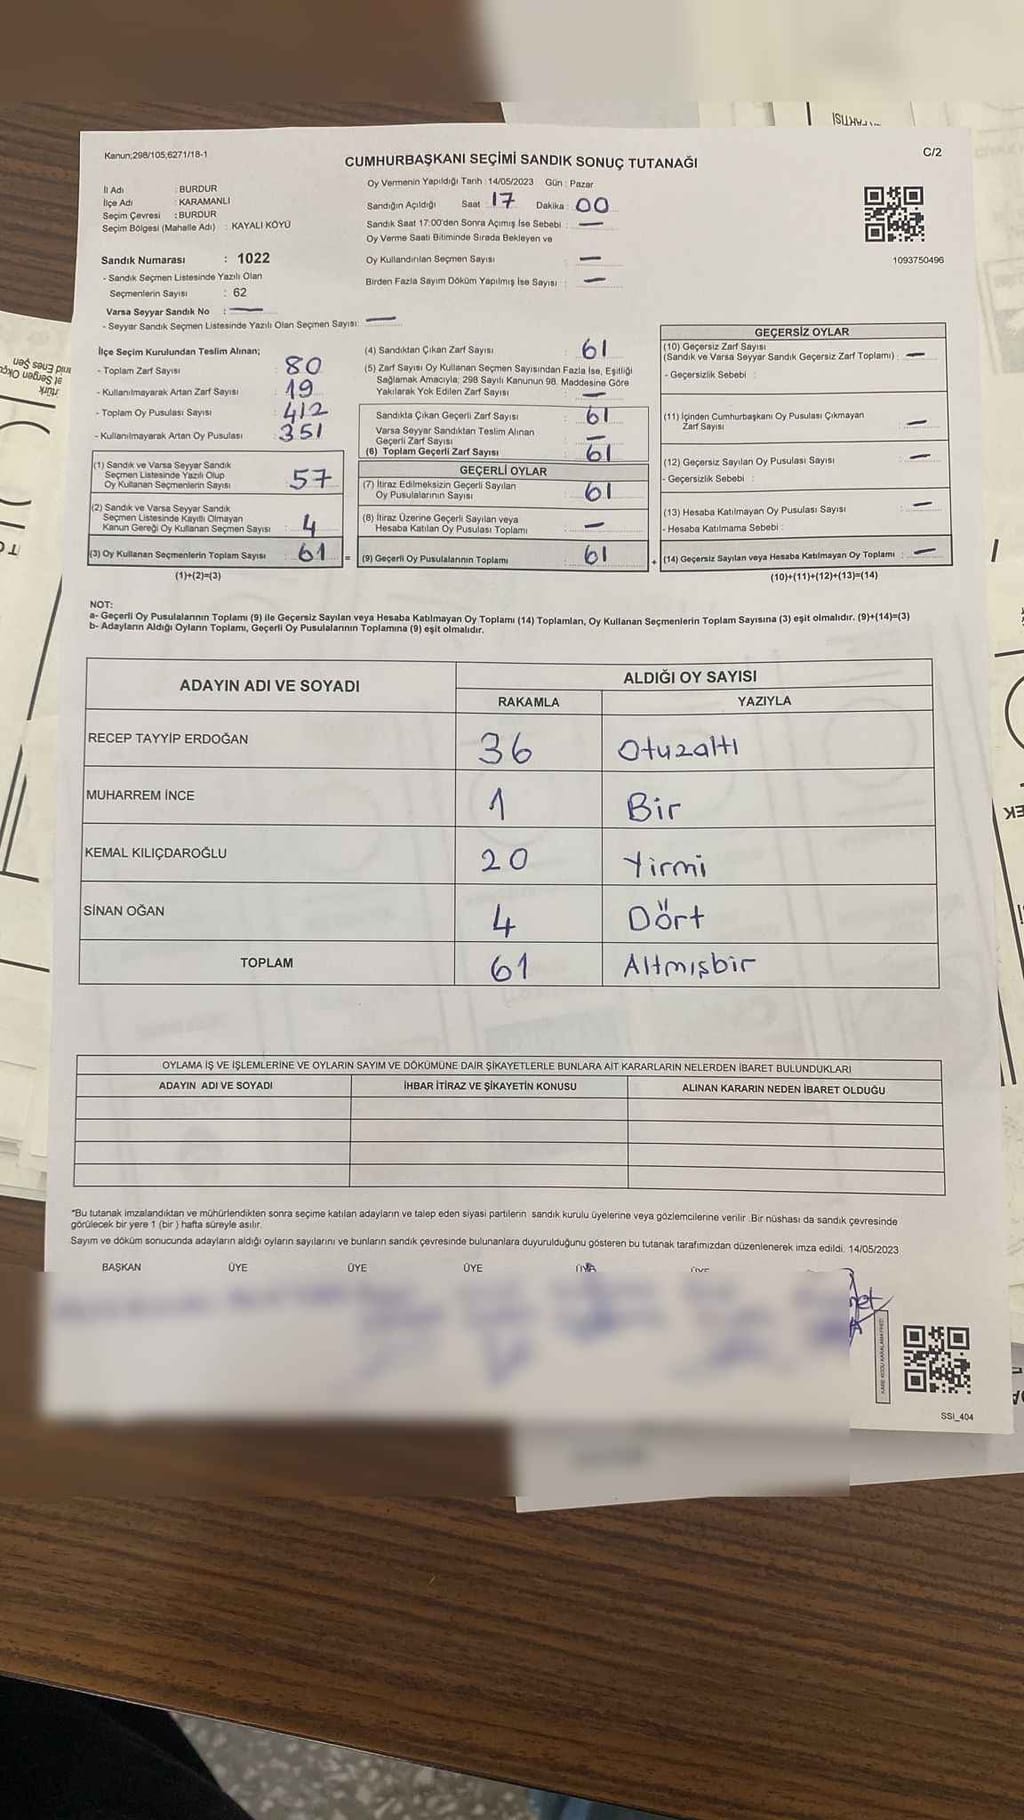 Kanun;298/105;6271/18-1
CUMHURBAŞKANI SEÇİMİ SANDIK SONUÇ TUTANAĞI
C/2
İl Adı : BURDUR
İlçe Adı : KARAMANLI
Seçim Çevresi : BURDUR
Seçim Bölgesi (Mahalle Adı) : KAYALI KÖYÜ
Sandık Numarası : 1022
- Sandık Seçmen Listesinde Yazılı Olan
Seçmenlerin Sayısı : 62
Varsa Seyyar Sandık No : —
- Seyyar Sandık Seçmen Listesinde Yazılı Olan Seçmen Sayısı: —
Oy Vermenin Yapıldığı Tarih : 14/05/2023 Gün : Pazar
Sandığın Açıldığı Saat : 17 Dakika : 00
Sandık Saat 17:00'den Sonra Açımış İse Sebebi : —
Oy Verme Saati Bitiminde Sırada Bekleyen ve
Oy Kullandırılan Seçmen Sayısı —
Birden Fazla Sayım Döküm Yapılmış İse Sayısı : —
1093750496
İlçe Seçim Kurulundan Teslim Alınan;
- Toplam Zarf Sayısı : 80
- Kullanılmayarak Artan Zarf Sayısı : 19
- Toplam Oy Pusulası Sayısı : 412
- Kullanılmayarak Artan Oy Pusulası : 351
(1) Sandık ve Varsa Seyyar Sandık
Seçmen Listesinde Yazılı Olup
Oy Kullanan Seçmenlerin Sayısı : 57
(2) Sandık ve Varsa Seyyar Sandık
Seçmen Listesinde Kayıtlı Olmayan
Kanun Gereği Oy Kullanan Seçmen Sayısı : 4
(3) Oy Kullanan Seçmenlerin Toplam Sayısı : 61 =
(1)+(2)=(3)
(4) Sandıktan Çıkan Zarf Sayısı : 61
(5) Zarf Sayısı Oy Kullanan Seçmen Sayısından Fazla İse, Eşitliği
Sağlamak Amacıyla; 298 Sayılı Kanunun 98. Maddesine Göre
Yakılarak Yok Edilen Zarf Sayısı : —
Sandıkta Çıkan Geçerli Zarf Sayısı : 61
Varsa Seyyar Sandıktan Teslim Alınan
Geçerli Zarf Sayısı : —
(6) Toplam Geçerli Zarf Sayısı : 61
GEÇERLİ OYLAR
(7) İtiraz Edilmeksizin Geçerli Sayılan
Oy Pusulalarının Sayısı : 61
(8) İtiraz Üzerine Geçerli Sayılan veya
Hesaba Katılan Oy Pusulası Toplamı : —
(9) Geçerli Oy Pusulalarının Toplamı : 61 +
GEÇERSİZ OYLAR
(10) Geçersiz Zarf Sayısı
(Sandık ve Varsa Seyyar Sandık Geçersiz Zarf Toplamı) : —
- Geçersizlik Sebebi :
(11) İçinden Cumhurbaşkanı Oy Pusulası Çıkmayan
Zarf Sayısı : —
(12) Geçersiz Sayılan Oy Pusulası Sayısı : —
- Geçersizlik Sebebi :
(13) Hesaba Katılmayan Oy Pusulası Sayısı : —
- Hesaba Katılmama Sebebi :
(14) Geçersiz Sayılan veya Hesaba Katılmayan Oy Toplamı : —
(10)+(11)+(12)+(13)=(14)
NOT:
a- Geçerli Oy Pusulalarının Toplamı (9) ile Geçersiz Sayılan veya Hesaba Katılmayan Oy Toplamı (14) Toplamları, Oy Kullanan Seçmenlerin Toplam Sayısına (3) eşit olmalıdır. (9)+(14)=(3)
b- Adayların Aldığı Oyların Toplamı, Geçerli Oy Pusulalarının Toplamına (9) eşit olmalıdır.
ADAYIN ADI VE SOYADI
ALDIĞI OY SAYISI
RAKAMLA YAZIYLA
RECEP TAYYİP ERDOĞAN 36 Otuzaltı
MUHARREM İNCE 1 Bir
KEMAL KILIÇDAROĞLU 20 Yirmi
SİNAN OĞAN 4 Dört
TOPLAM 61 Altmışbir
OYLAMA İŞ VE İŞLEMLERİNE VE OYLARIN SAYIM VE DÖKÜMÜNE DAİR ŞİKAYETLERLE BUNLARA AİT KARARLARIN NELERDEN İBARET BULUNDUKLARI
ADAYIN ADI VE SOYADI İHBAR İTİRAZ VE ŞİKAYETİN KONUSU ALINAN KARARIN NEDEN İBARET OLDUĞU
*Bu tutanak imzalandıktan ve mühürlendikten sonra seçime katılan adayların ve talep eden siyasi partilerin sandık kurulu üyelerine veya gözlemcilerine verilir. Bir nüshası da sandık çevresinde
görülecek bir yere 1 (bir ) hafta süreyle asılır.
Sayım ve döküm sonucunda adayların aldığı oyların sayılarını ve bunların sandık çevresinde bulunanlara duyurulduğunu gösteren bu tutanak tarafımızdan düzenlenerek imza edildi. 14/05/2023
BAŞKAN ÜYE ÜYE ÜYE
SSI_404